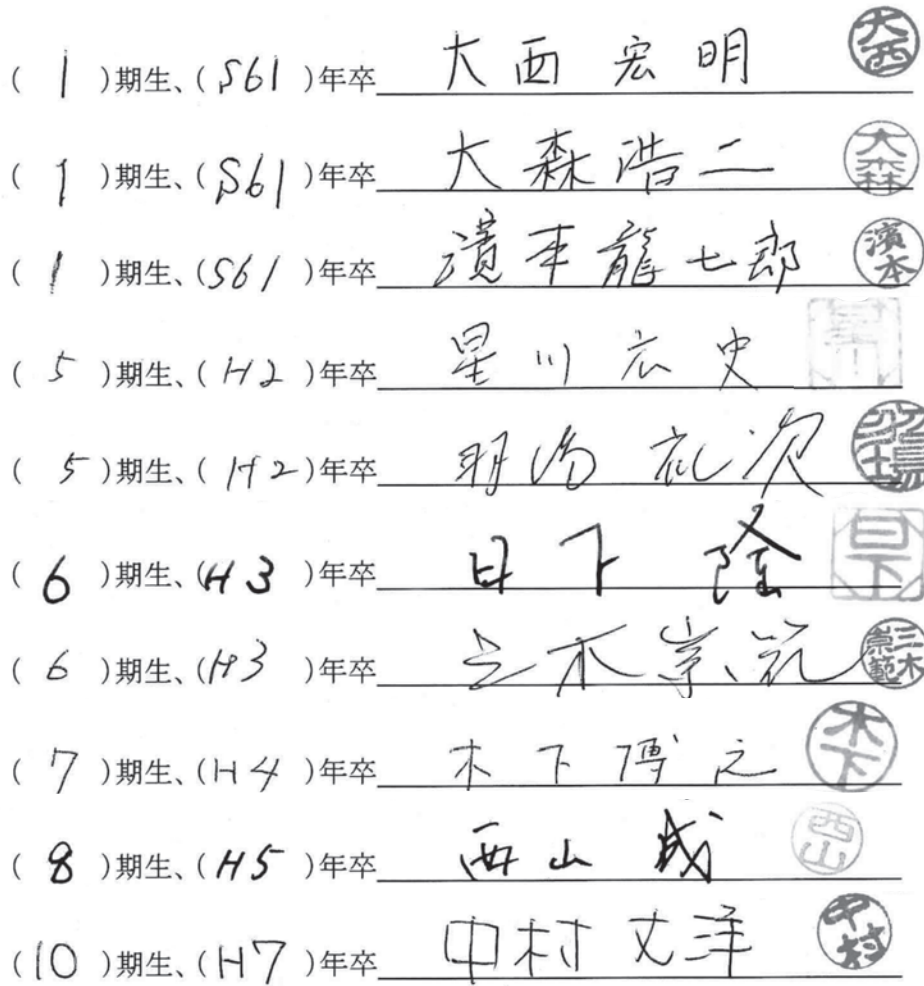 ( 1 )期生、( S61 )年卒 大西宏明 大西
( 1 )期生、( S61 )年卒 大森浩二 大森
( 1 )期生、( S61 )年卒 濱本龍七郎 濱本
( 5 )期生、( H2 )年卒 星川広史 星川
( 5 )期生、( H2 )年卒
( 6 )期生、( H3 )年卒 日下隆 日下
( 6 )期生、( H3 )年卒 三木崇範 三木崇範
( 7 )期生、( H4 )年卒 木下博之 木下
( 8 )期生、( H5 )年卒 西山成 西山
( 10 )期生、( H7 )年卒 中村丈洋 中村